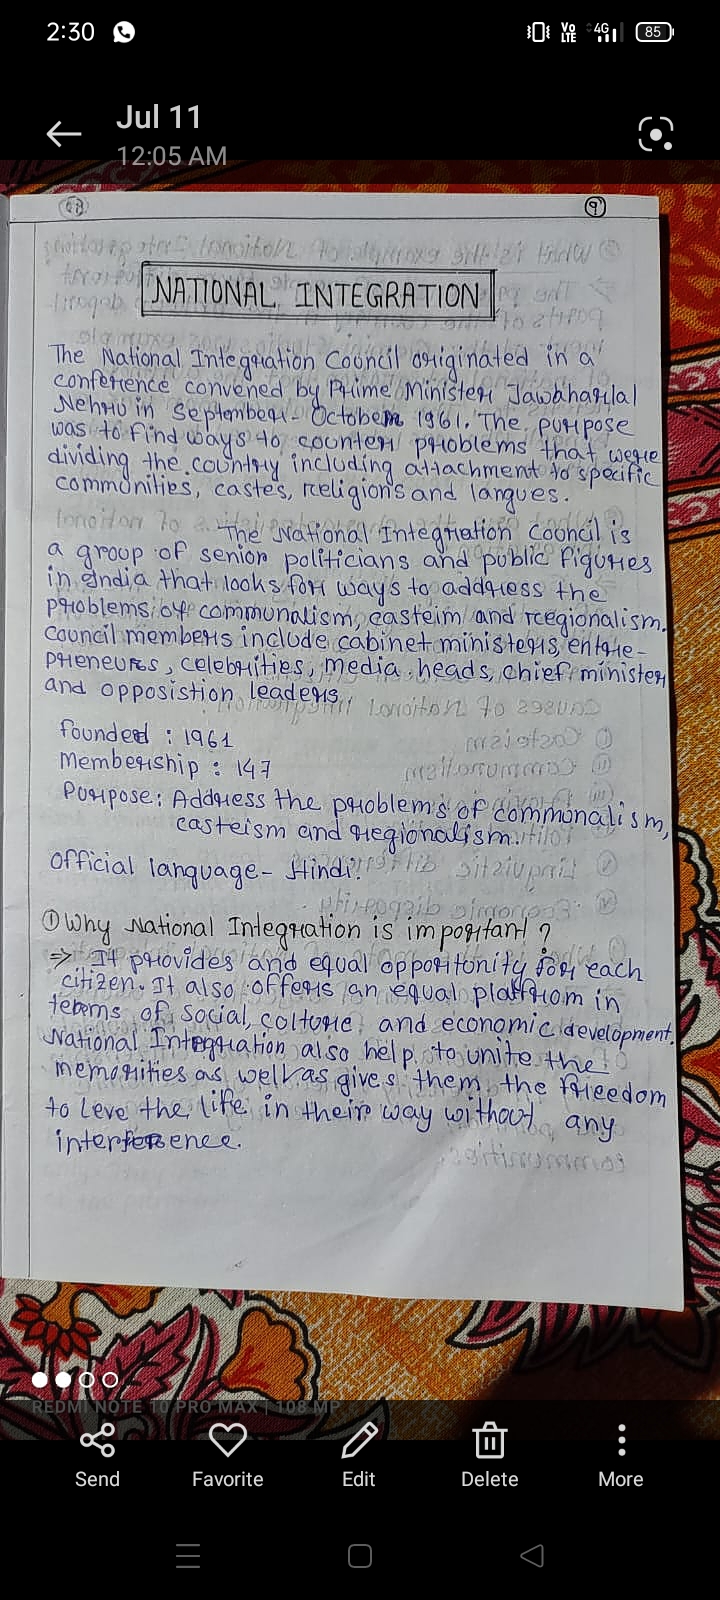 2:30
Vo LTE 4G 85
Jul 11
12:05 AM
9
NATIONAL INTEGRATION
The National Integration Council originated in a
conference convened by Prime Minister Jawaharlal
Nehru in September- October 1961. The purpose
was to find ways to counter problems that were
dividing the country including attachment to specific
communities, castes, religions and langues.
The National Integration Council is
a group of senior politicians and public figures
in India that looks for ways to address the
problems of communalism, casteim and regionalism.
Council members include cabinet ministers, entre-
preneures, celebrities, media heads, chief minister
and opposistion leaders.
founded : 1961
Membership : 147
Purpose: Address the problems of communalism,
casteism and regionalism.
Official language- Hindi.
① Why National Integration is important ?
⇒ It provides and equal opportonity for each
citizen. It also offers an equal platfrom in
terms of social, colture and economic development.
National Integration also help to unite the
memorities as well as gives them the freedom
to leve the life in their way without any
interference.
REDMI NOTE 10 PRO MAX | 108 MP
Send Favorite Edit Delete More